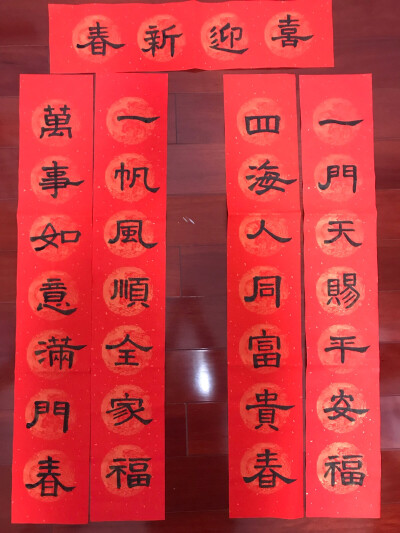 喜迎新春
一門天賜平安福
四海人同富貴春
一帆風順全家福
萬事如意滿門春